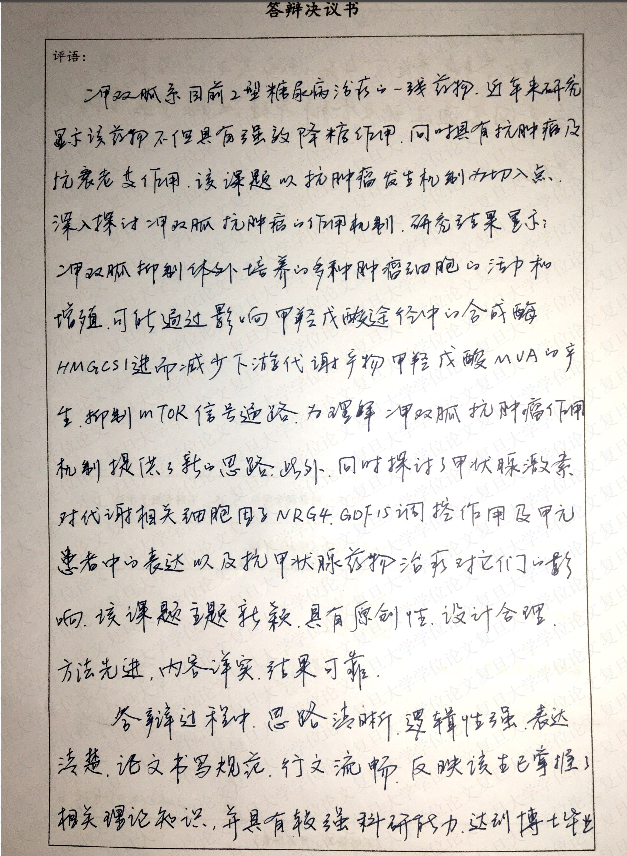 答辩决议书
评语：
二甲双胍系目前2型糖尿病治疗的一线药物.近年来研究
显示该药物不但具有强效降糖作用.同时具有抗肿瘤及
抗衰老变作用.该课题以抗肿瘤发生机制为切入点.
深入探讨二甲双胍抗肿瘤的作用机制.研究结果显示:
二甲双胍抑制体外培养的多种肿瘤细胞的活力和
增殖.可能通过影响甲羟戊酸途径中的合成酶
HMGCS1进而减少下游代谢产物甲羟戊酸MVA的产
生.抑制mTOR信号通路.为理解二甲双胍抗肿瘤作用
机制提供了新的思路.此外.同时探讨了甲状腺激素
对代谢相关细胞因子NRG4.GDF15调控作用及甲亢
患者中的表达以及抗甲状腺药物治疗对它们的影
响.该课题主题新颖.具有原创性.设计合理.
方法先进,内容详实.结果可靠.
答辩过程中.思路清晰.逻辑性强.表达
清楚.论文书写规范.行文流畅.反映该生已掌握了
相关理论知识,并具有较强科研能力.达到博士毕业